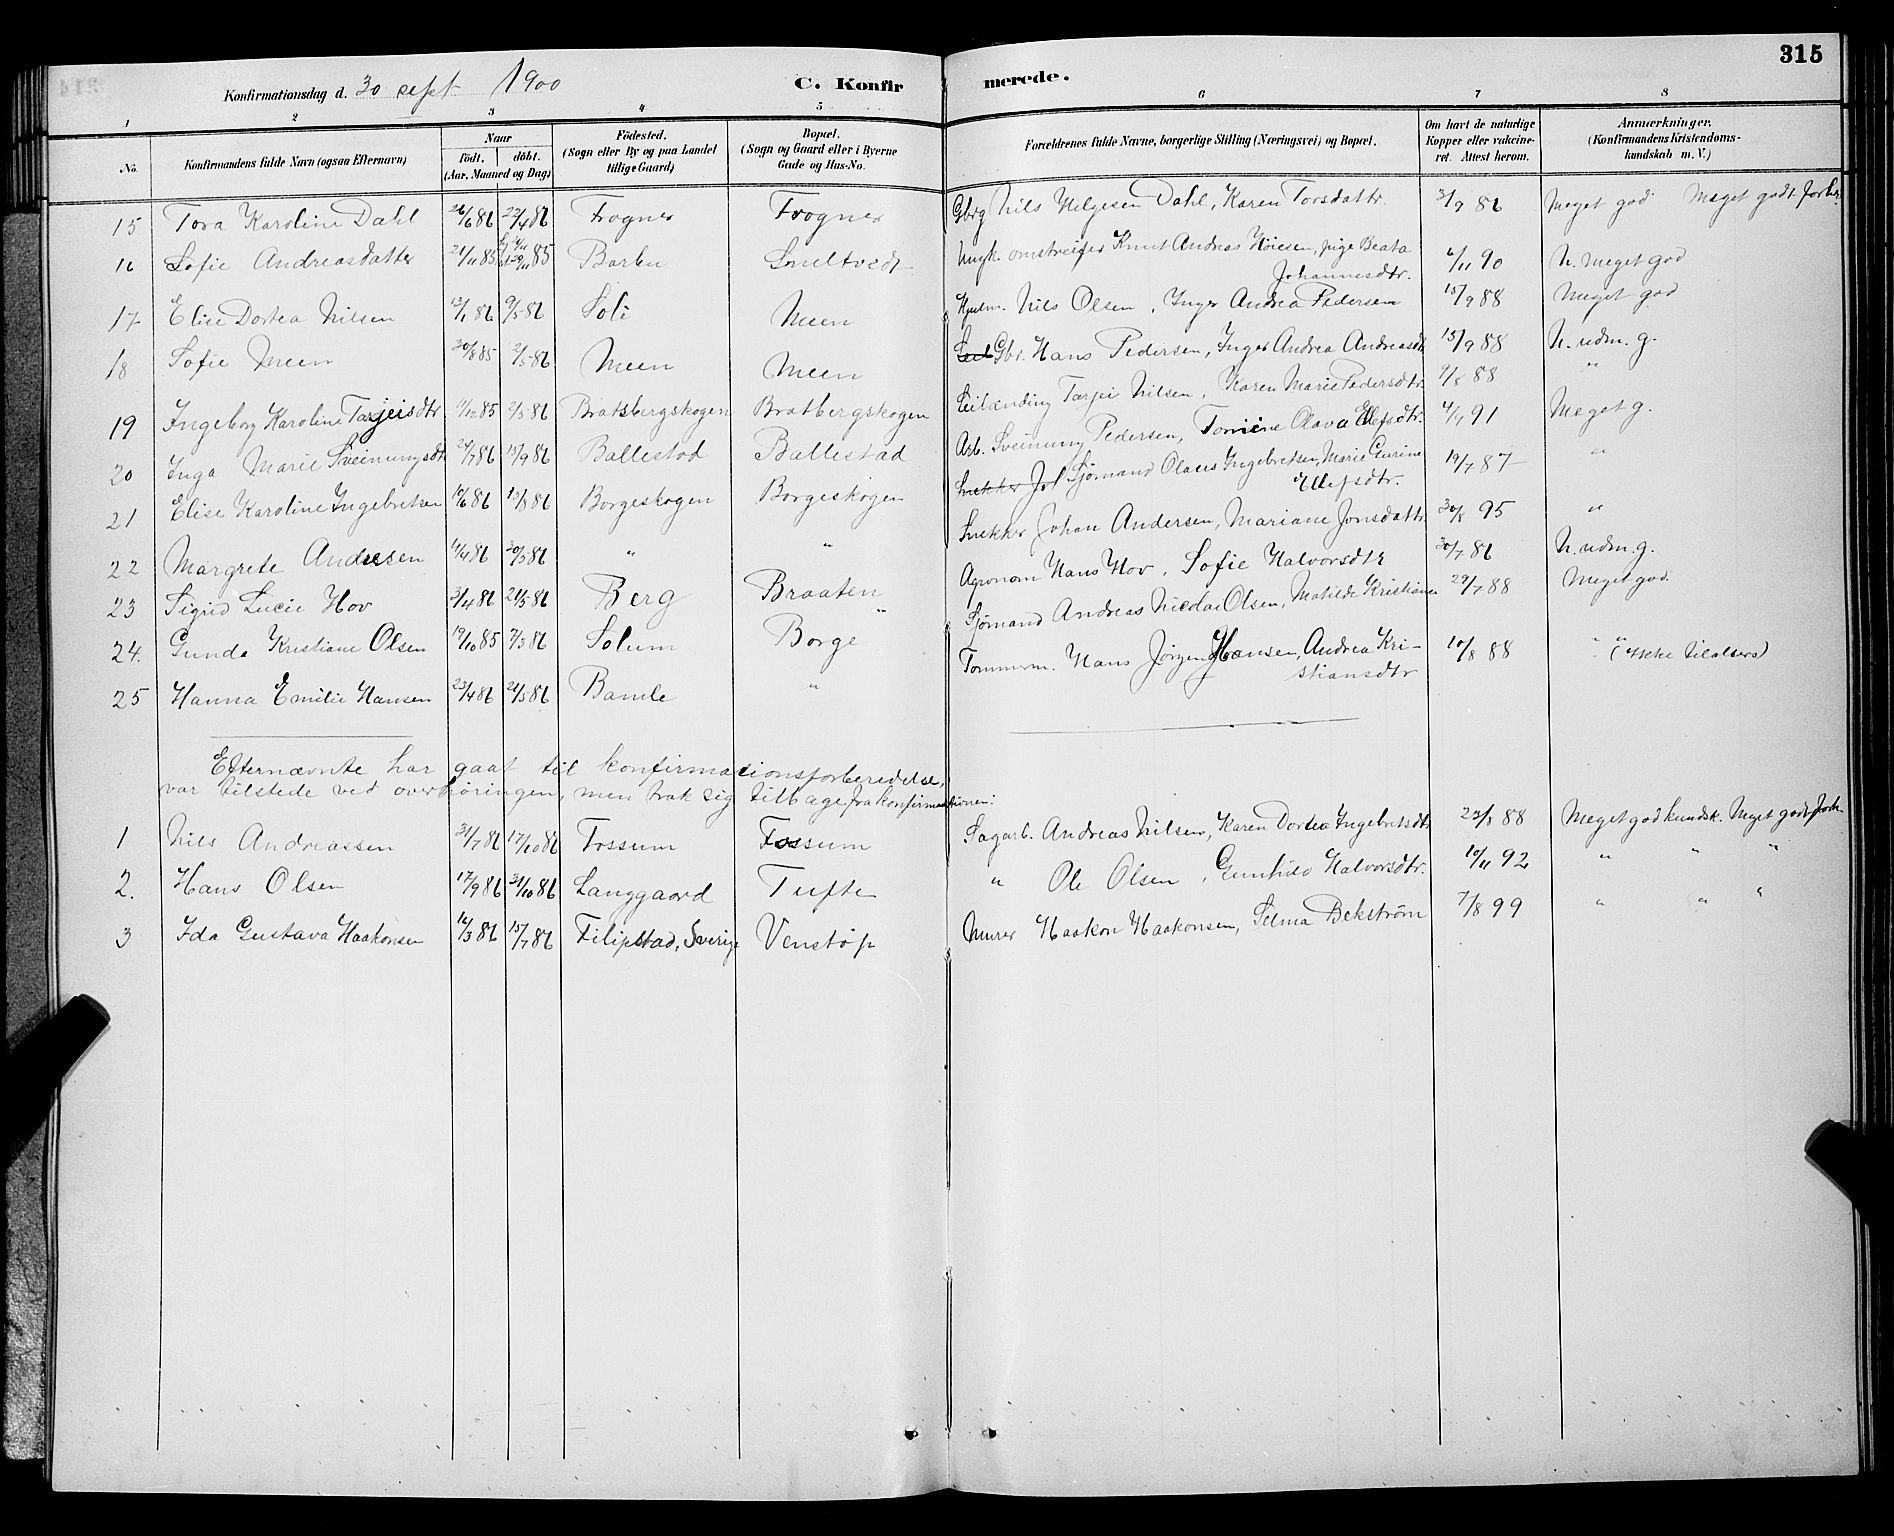 315
Konfirmationsdag d. 30 sept 1900 C. Konfirmerede.
1 2 3 4 5 6 7 8
No. Konfirmandens fulde Navn (ogsaa Efternavn) Naar födt. döbt. (Aar, Maaned og Dag) Födested. (Sogn eller By og paa Landet tillige Gaard) Bopæl. (Sogn og Gaard eller i Byerne Gade og Hus-No. Forældrenes fulde Navne, borgerlige Stilling (Næringsvei) og Bopæl. Om havt de naturlige Kopper eller vakcineret. Attest herom. Anmærkninger. (Konfirmandens Kristendomskundskab m. V.)
15 Tora Karoline Dahl 26/6 86 22/4 86 Frogner Frogner Gbrg Nils Helgesen Dahl, Karen Torsdattr. 3/9 86 Meget god Meget godt forh.
16 Sofie Andreasdatter 21/11 85 85 Barbu Smeltvedt Ungk. omstreifer Knut Andreas Höiesen, pige Beata Johannesdtr. 6/11 90 N. meget god
17 Elise Dortea Nilsen 13/1 86 9/5 86 Soli Meen Husm. Nils Olsen, Inger Andrea Pedersen 15/9 88 Meget god
18 Sofie Meen 30/8 85 2/5 86 Meen Meen Gbr. Hans Pedersen, Inger Andrea Andreasdt 15/9 88 N. udm. g.
19 Ingeborg Karoline Tarjeisdtr 11/12 85 2/5 86 Bratsbergskogen Bratbergskogen Leilænding Tarjei Nilsen, Karen Marie Pedersdtr 9/8 88 "
20 Inga Marie Sveinungsdt 24/7 86 15/9 86 Ballestad Ballestad Arb. Sveinung Pedersen, Tomine Olava Ellefsdtr. 4/7 91 Meget g.
21 Elise Karoline Ingebretsen 10/6 86 15/8 86 Borgeskogen Borgeskogen Snekker Joh Sjømand Olaus Ingebretsen, Marie Gurine Ellefsdtr. 19/7 87 "
22 Margrete Andersen 11/4 86 30/5 86 " " Snekker Johan Andersen, Mariane Jonsdattr 30/8 95 "
23 Sigrid Lucie Hov 3/4 86 21/5 86 Berg Braaten Agronom Hans Hov, Sofie Halvorsdtr 30/7 86 N. udm. g.
24. Gunda Kristiane Olsen 19/10 85 7/3 86 Solum Borge " Sjømand Andreas Nicolai Olsen, Matilde Kristiansen 29/7 88 Meget god.
25 Hanna Emilie Hansen 23/4 86 21/5 86 Bamle " Tømmerm. Hans Jørgen Hansen, Andrea Kristiansdtr 10/8 88 " " (Ikke tilalters)
Efternævnte har gaat til konfirmationsforberedelse,
var tilstede ved overhøringen, men trak sig tilbage fra konfirmationen:
1 Nils Andreassen 31/7 86 17/10 86 Fossum Fossum Sagarb. Andreas Nilsen, Karen Dortea Ingebretsdtr 22/8 88 Meget god kundsk. Meget godt forh
2. Hans Olsen 17/9 86 31/10 86 Langgaard Tufte " Ole Olsen, Gunhild Halvorsdtr. 10/11 92 " " "
3 Ida Gustava Haakonsen 16/3 86 15/7 86 Filipstad, Sverige Venstøp Murer Haakon Haakonsen, Selma Bekström 7/8 99 " " "